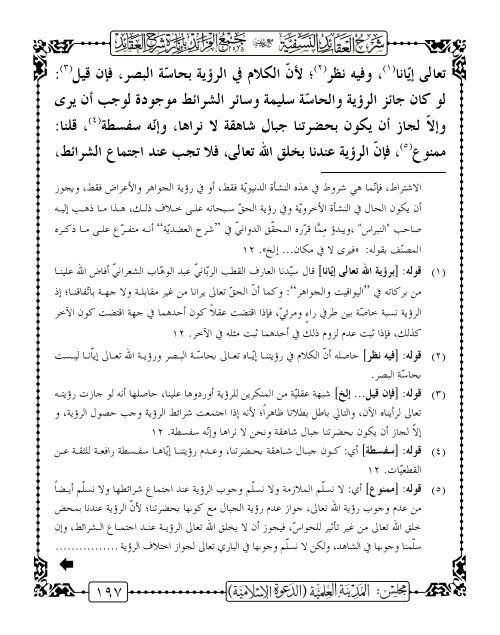 شرح العقائد النسفية مع جمع الفرائد بإنارة شرح العقائد
تعالى إيّانا(١)، وفيه نظر(٢)؛ لأنّ الكلام في الرؤية بحاسّة البصر، فإن قيل(٣):
لو كان جائز الرؤية والحاسّة سليمة وسائر الشرائط موجودة لوجب أن يرى
وإلاّ لجاز أن يكون بحضرتنا جبال شاهقة لا نراها، وإنّه سفسطة(٤)، قلنا:
ممنوع(٥)، فإنّ الرؤية عندنا بخلق الله تعالى، فلا تجب عند اجتماع الشرائط،
الاشتراط، فإنّما هي شروط في هذه النشأة الدنيويّة فقط، أو في رؤية الجواهر والأعراض فقط، ويجوز
أن يكون الحال في النشأة الأخرويّة وفي رؤية الحقّ سبحانه على خلاف ذلك، هذا ما ذهب إليه
صاحب "النبراس"، ويبدؤ ممّا قرّره المحقّق الدوانيّ في "شرح العضديّة" أنه متفرّع على ما ذكره
المصنّف بقوله: «فيرى لا في مكان... إلخ». ١٢
(١) قوله: [برؤية الله تعالى إيّانا] قال سيّدنا العارف القطب الربّانيّ عبد الوهّاب الشعرانيّ أفاض الله علينا
من بركاته في "اليواقيت والجواهر": وكما أنّ الحق تعالى يرانا من غير مقابلة ولا جهة باتّفاقنا؛ إذ
الرؤية نسبة خاصّة بين طرفي راءٍ ومرئيّ، فإذا اقتضت عقلاً كون أحدهما في جهة اقتضت كون الآخر
كذلك، فإذا ثبت عدم لزوم ذلك في أحدهما ثبت مثله في الآخر. ١٢
(٢) قوله: [فيه نظر] حاصله أنّ الكلام في رؤيتنا إيّاه تعالى بحاسّة البصر ورؤية الله تعالى إيّانا ليست
بحاسّة البصر.
(٣) قوله: [فإن قيل... إلخ] شبهة عقليّة من المنكرين للرؤية أوردوها علينا، حاصلها أنه لو جازت رؤيته
تعالى لرأيناه الآن، والتالي باطل بطلانا ظاهراً؛ لأنه إذا اجتمعت شرائط الرؤية وجب حصول الرؤية، و
إلاّ لجاز أن يكون بحضرتنا جبال شاهقة ونحن لا نراها وإنّه سفسطة. ١٢
(٤) قوله: [سفسطة] أي: كون جبال شاهقة بحضرتنا، وعدم رؤيتنا إيّاها سفسطة رافعة للثقة عن
القطعيّات. ١٢
(٥) قوله: [ممنوع] أي: لا نسلّم الملازمة ولا نسلّم وجوب الرؤية عند اجتماع شرائطها ولا نسلّم أيضاً
من عدم وجوب رؤية الله تعالى، جواز عدم رؤية الجبال مع كونها بحضرتنا؛ لأنّ الرؤية عندنا بمحض
خلق الله تعالى من غير تأثير للحواسّ، فيجوز أن لا يخلق الله تعالى الرؤية عند اجتماع الشرائط، وإن
سلّمنا وجوبها في الشاهد، ولكن لا نسلّم وجوبها في الباري تعالى لجواز اختلاف الرؤية ................
مجلس: المدينة العلمية (الدعوة الإسلامية)
١٩٧